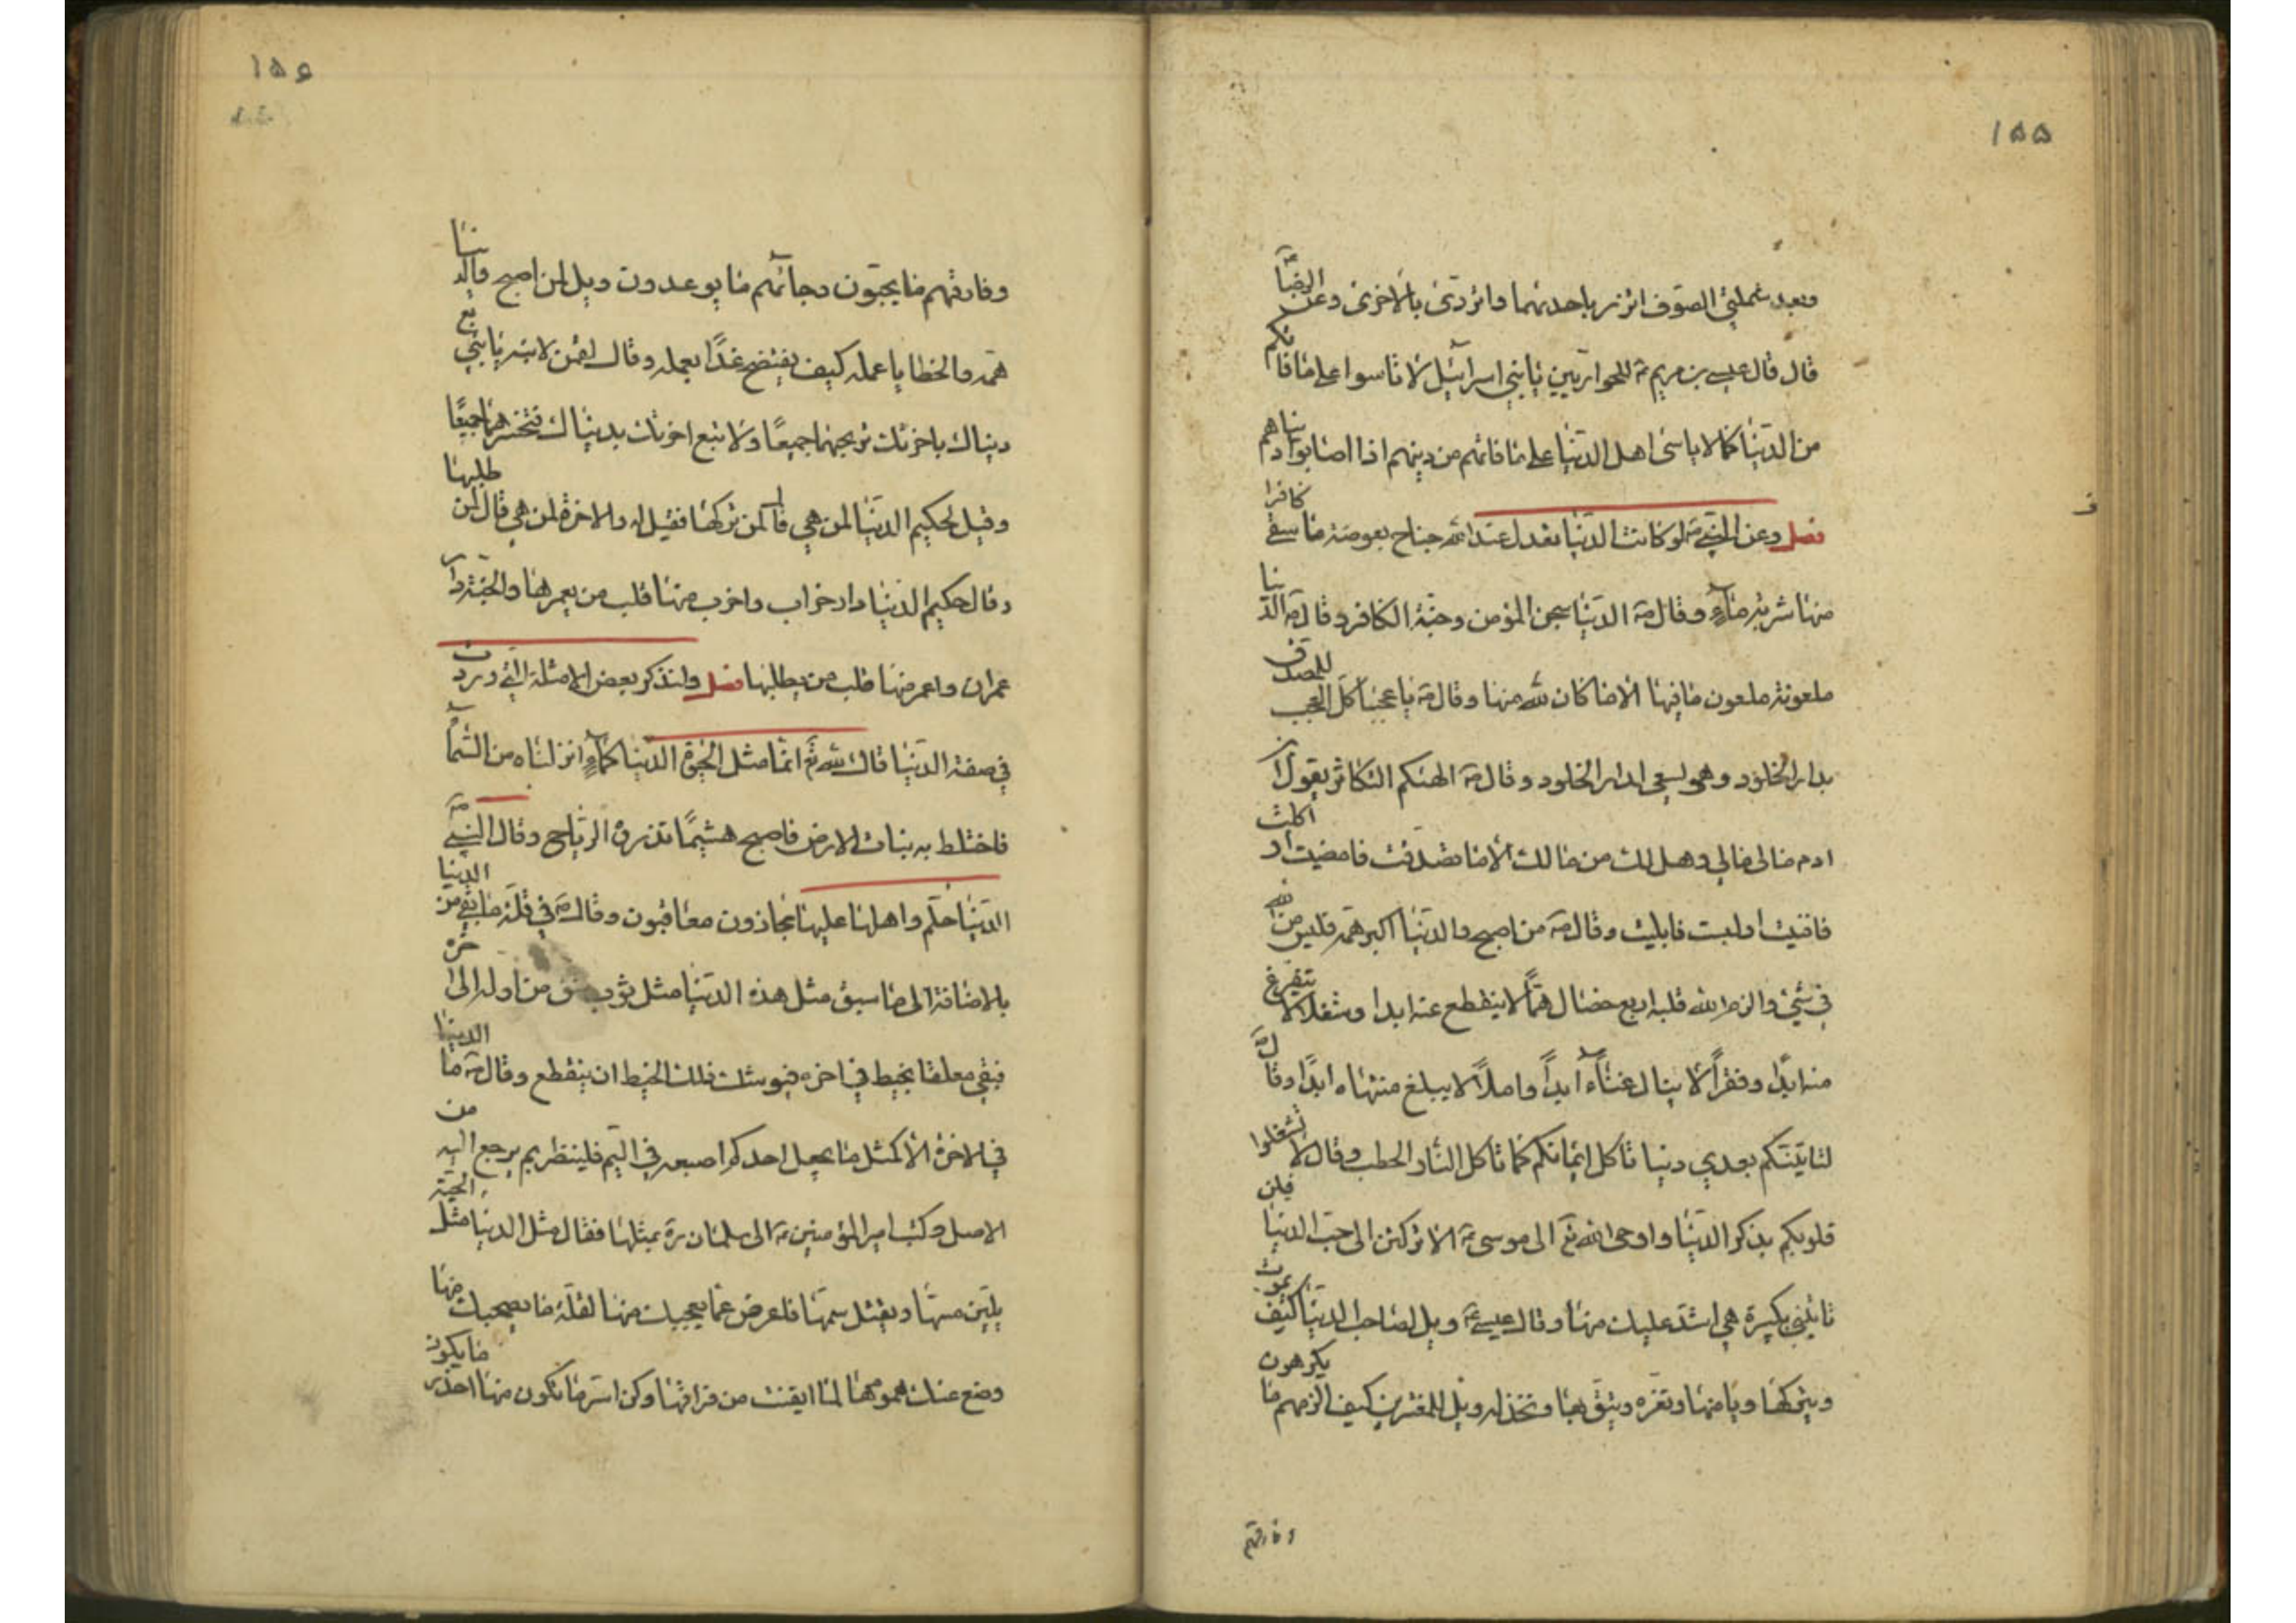 ١٥٥
وبعد غملتي الصوف اتزر باحديهما واتردى بالاخرى وعن الرضا
قال قال عيسى بن مريم ع للحواريين يا بني اسرائيل لا تأسوا على ما فاتكم
من الدنيا كما لا ياسى اهل الدنيا على ما فاتهم من دينهم اذا اصابوا دنياهم
فصل وعن النبي ص لو كانت الدنيا تعدل عند الله جناح بعوضة ما سقى كافرا
منها شربة ماء وقال ص الدنيا سجن المؤمن وجنة الكافر وقال ص الدنيا
ملعونة ملعون ما فيها الا ما كان لله منها وقال ص يا عجبا كل العجب للمصدق
بدار الخلود وهو يسعى لدار الخلود وقال ص الهيكم التكاثر يقول ابن
ادم مالي مالي وهل لك من مالك الا ما تصدقت فامضيت او اكلت
فافنيت او لبست فابليت وقال ص من اصبح والدنيا اكبر همه فليس من الله
في شيء والزم الله قلبه اربع خصال هما لا ينقطع عنه ابدا وشغلا لا يتفرغ
منه ابدا وفقرا لا ينال غناء ابدا واملا لا يبلغ منتهاه ابدا وقال ص
لتاتينكم بعدي دنيا تاكل ايمانكم كما تاكل النار الحطب وقال لا تشغلوا
قلوبكم بذكر الدنيا واوحى الله تع الى موسى ع لا تركنن الى حب الدنيا فلن
تاتيني بكبيرة هي اشد عليك منها وقال عيسى ع ويل لصاحب الدنيا كيف يموت
ويتركها ويامنها وتغره ويثق بها وتخذله ويل للمغترين كيف الزمهم ما يكرهون
وفارقهم
١٥٦
وفارقهم ما يحبون وجائهم ما يوعدون ويل لمن اصبح والدنيا
همه والخطايا عمله كيف يفتضح غدا بعمله وقال لقمن لابنه يا بني بع
دنياك باخرتك تربحهما جميعا ولا تبع اخرتك بدنياك فتخسرهما جميعا
وقيل لحكيم الدنيا لمن هي قال لمن تركها فقيل له والاخرة لمن هي قال لمن طلبها
وقال حكيم الدنيا دار خراب واخرب منها قلب من يعمرها والجنة دار
عمران واعمر منها قلب من يطلبها فصل ولنذكر بعض الامثلة التي وردت
في صفة الدنيا قال الله تع انما مثل الحيوة الدنيا كماء انزلناه من السماء
فاختلط به نبات الارض فاصبح هشيما تذروه الرياح وقال النبي ص
الدنيا حلم واهلها عليها مجازون معاقبون وقال ص في قلة ما بقي من الدنيا
بالاضافة الى ما سبق مثل هذه الدنيا مثل ثوب شق من اوله الى اخره
فبقي معلقا بخيط في اخره فيوشك ذلك الخيط ان ينقطع وقال ص ما الدنيا
في الاخرة الا كمثل ما يجعل احدكم اصبعه في اليم فلينظر بم يرجع اليه من
الاصل وكتب امير المؤمنين ع الى سلمان ره بمثلها فقال مثل الدنيا مثل الحية
يلين مسها ويقتل سمها فاعرض عما يعجبك منها لقلة ما يصحبك منها
وضع عنك همومها لما ايقنت من فراقها وكن اسر ما تكون منها احذر ما يكون